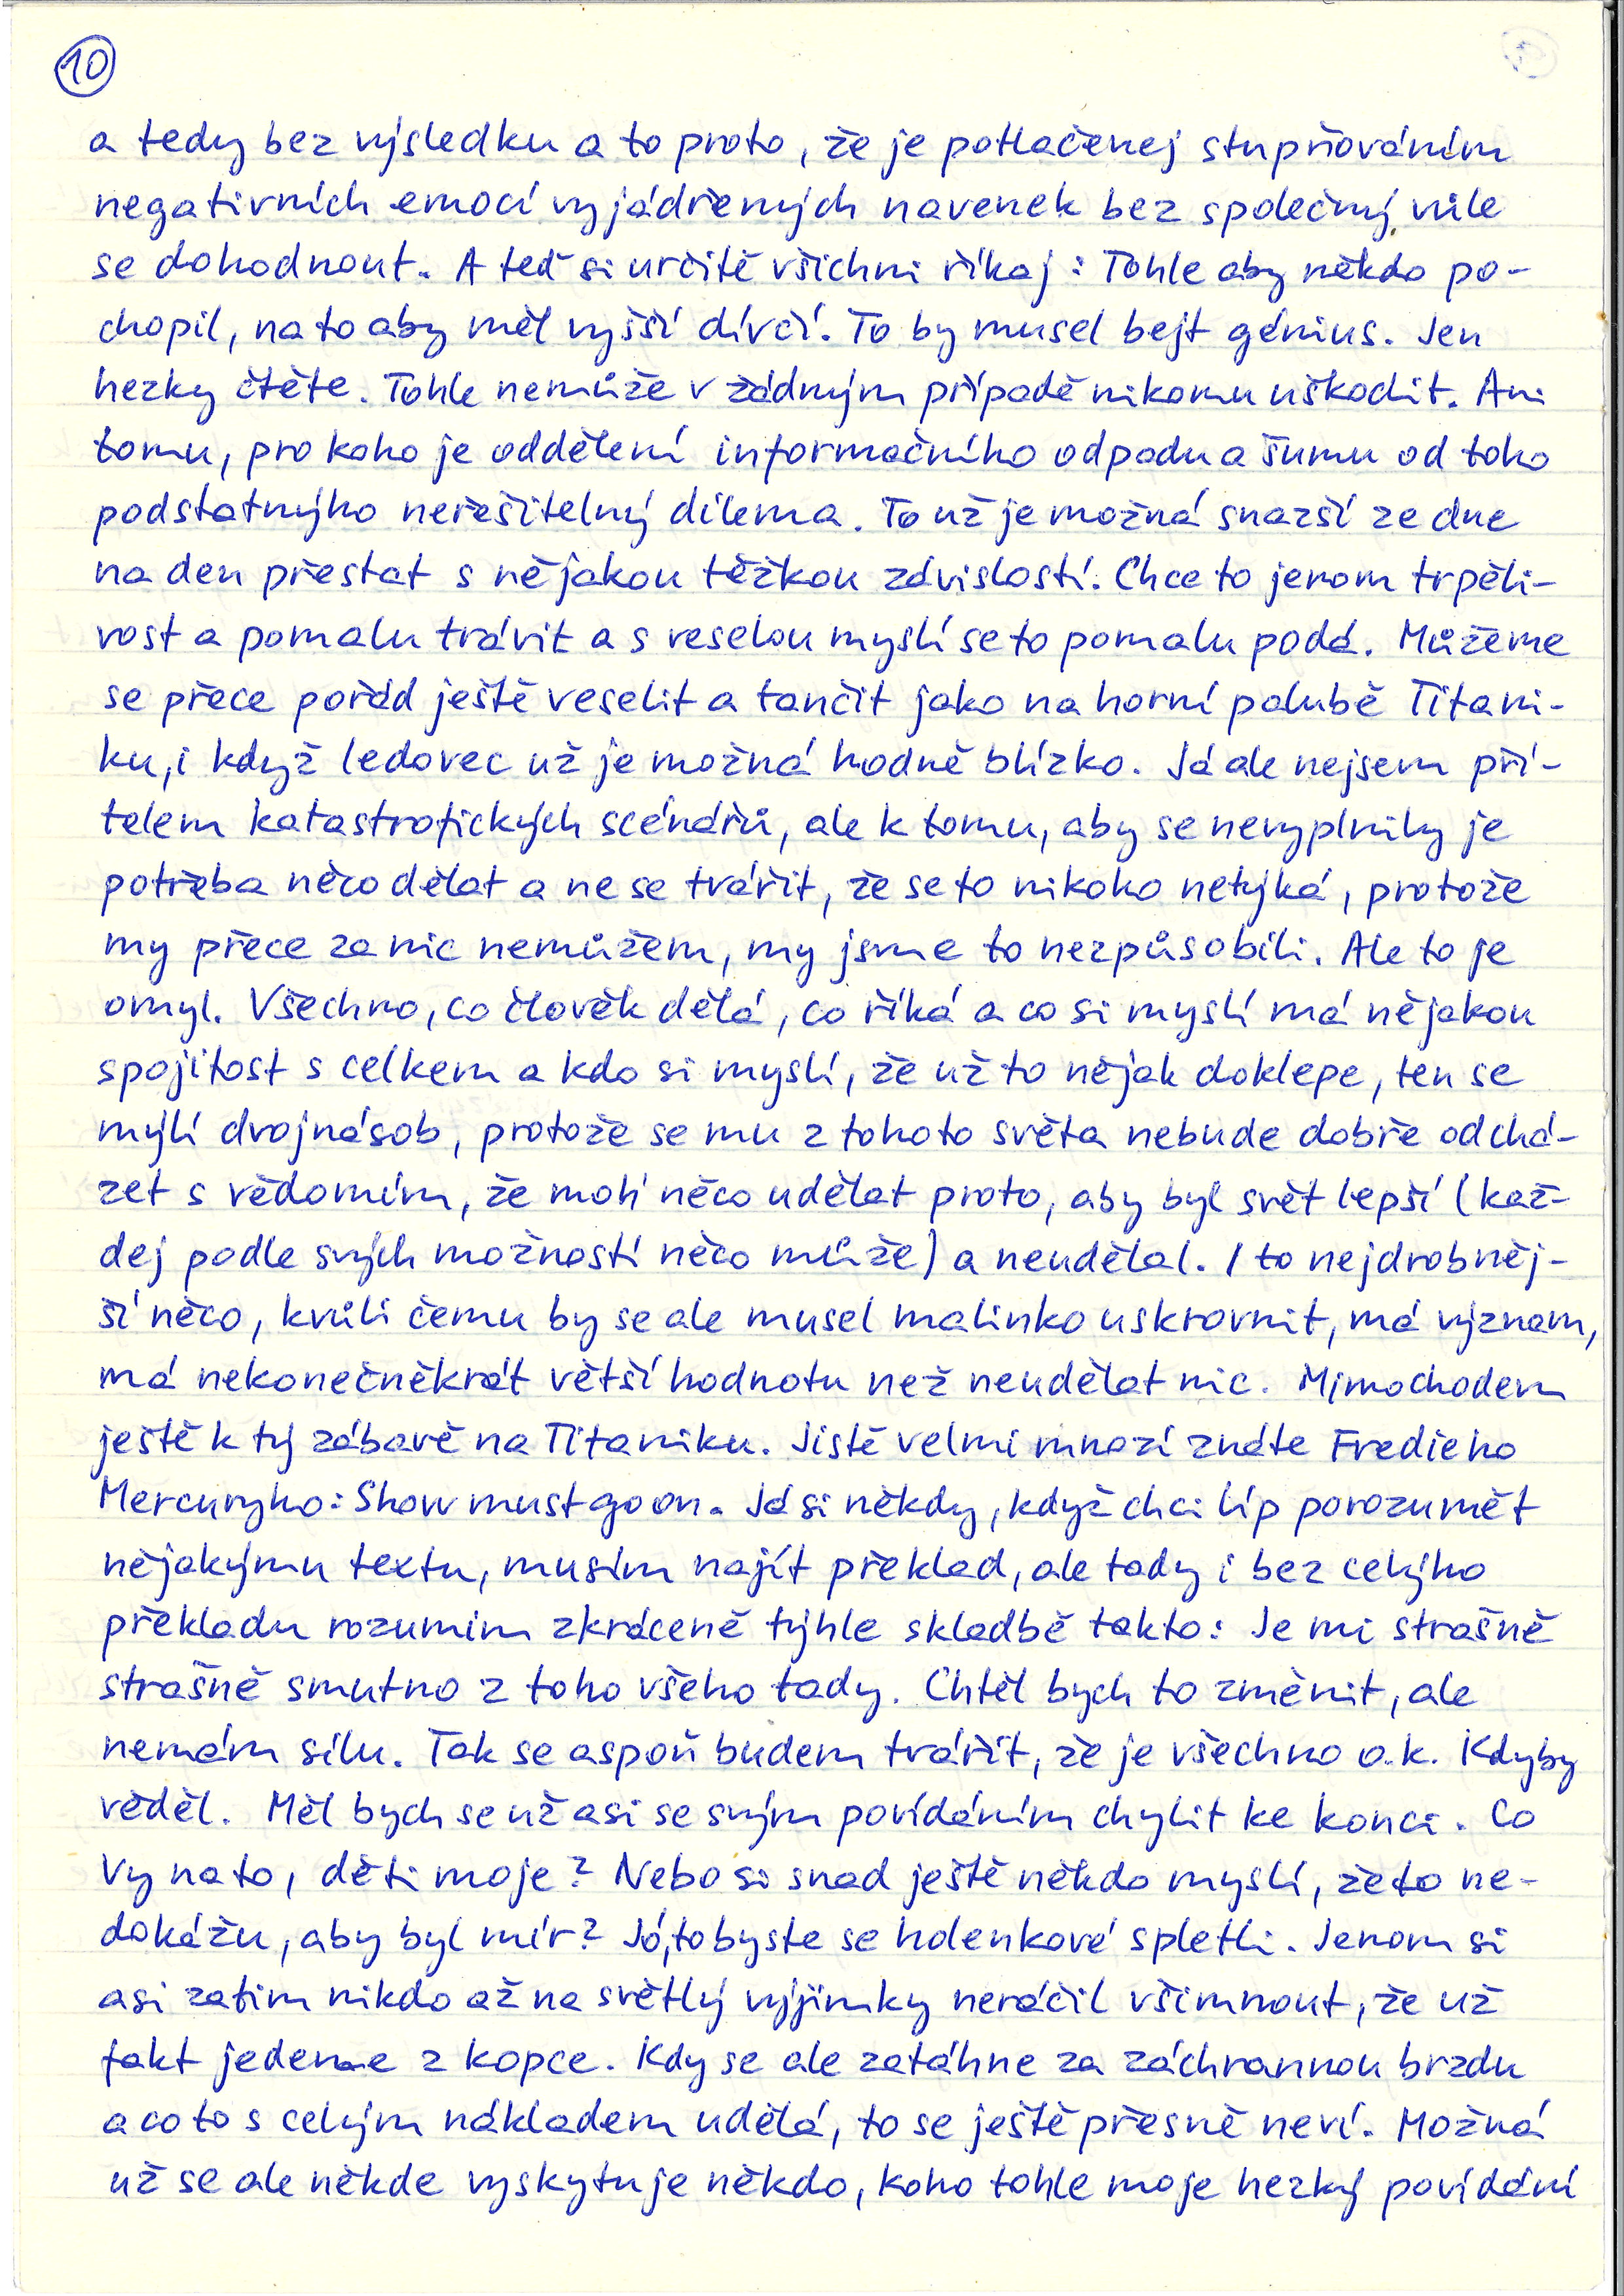 10
a tedy bez výsledku a to proto, že je potlačenej stupňováním
negativních emocí vyjádřených navenek bez společný vůle
se dohodnout. A teď si určitě všichni říkaj: Tohle aby někdo po-
chopil, na to aby měl vyšší dívčí. To by musel bejt génius. Jen
hezky čtěte. Tohle nemůže v žádným případě nikomu uškodit. Ani
tomu, pro koho je oddělení informačního odpadu a šumu od toho
podstatnýho neřešitelný dilema. To už je možná snazší ze dne
na den přestat s nějakou těžkou závislostí. Chce to jenom trpěli-
vost a pomalu trávit a s veselou myslí se to pomalu podá. Můžeme
se přece pořád ještě veselit a tančit jako na horní palubě Titani-
ku, i když ledovec už je možná hodně blízko. Já ale nejsem pří-
telem katastrofických scénářů, ale k tomu, aby se nevyplnily je
potřeba něco dělat a ne se tvářit, že se to nikoho netýká, protože
my přece za nic nemůžem, my jsme to nezpůsobili. Ale to je
omyl. Všechno, co člověk dělá, co říká a co si myslí má nějakou
spojitost s celkem a kdo si myslí, že už to nějak doklepe, ten se
mýlí dvojnásob, protože se mu z tohoto světa nebude dobře odchá-
zet s vědomím, že moh něco udělat proto, aby byl svět lepší (kaž-
dej podle svých možností něco může) a neudělal. I to nejdrobněj-
ší něco, kvůli čemu by se ale musel malinko uskrovnit, má význam,
má nekonečněkrát větší hodnotu než neudělat nic. Mimochodem
ještě k tý zábavě na Titaniku. Jistě velmi mnozí znáte Fredieho
Mercuryho: Show must go on. Já si někdy, když chci líp porozumět
nějakýmu textu, musím najít překlad, ale tady i bez celýho
překladu rozumim zkráceně týhle skladbě takto: Je mi strašně
strašně smutno z toho všeho tady. Chtěl bych to změnit, ale
nemám sílu. Tak se aspoň budem tvářit, že je všechno o.k. Kdyby
věděl. Měl bych se už asi se svým povídáním chýlit ke konci. Co
Vy na to, děti moje? Nebo si snad ještě někdo myslí, že to ne-
dokážu, aby byl mír? Jó, to byste se holenkové spletli. Jenom si
asi zatim nikdo až na světlý výjimky neráčil všimnout, že už
fakt jedeme z kopce. Kdy se ale zatáhne za záchrannou brzdu
a co to s celým nákladem udělá, to se ještě přesně neví. Možná
už se ale někde vyskytuje někdo, koho tohle moje hezký povídání